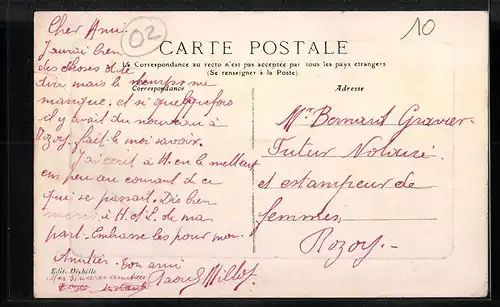 10
02
CARTE POSTALE
La Correspondance au recto n'est pas acceptée par tous les pays étrangers
(Se renseigner à la Poste)
Correspondance
Adresse
Cher Ami
J'aurai bien
des choses à te
dire mais le temps me
manque. et si quelquefois
il y avait du nouveau à
Rozoy, fait le moi savoir.
J'ai écrit à H. en le mettant
un peu au courant de ce
qui se passait. Dis bien
à H et L de ma
part. Embrasse les pour moi.
Amitiés. ton ami
Raoul
Mes sincères amitiés
Edit. Déchille
Mr Bernard Gravier
Futur Notaire
et estampeur de
femmes
Rozoy.-